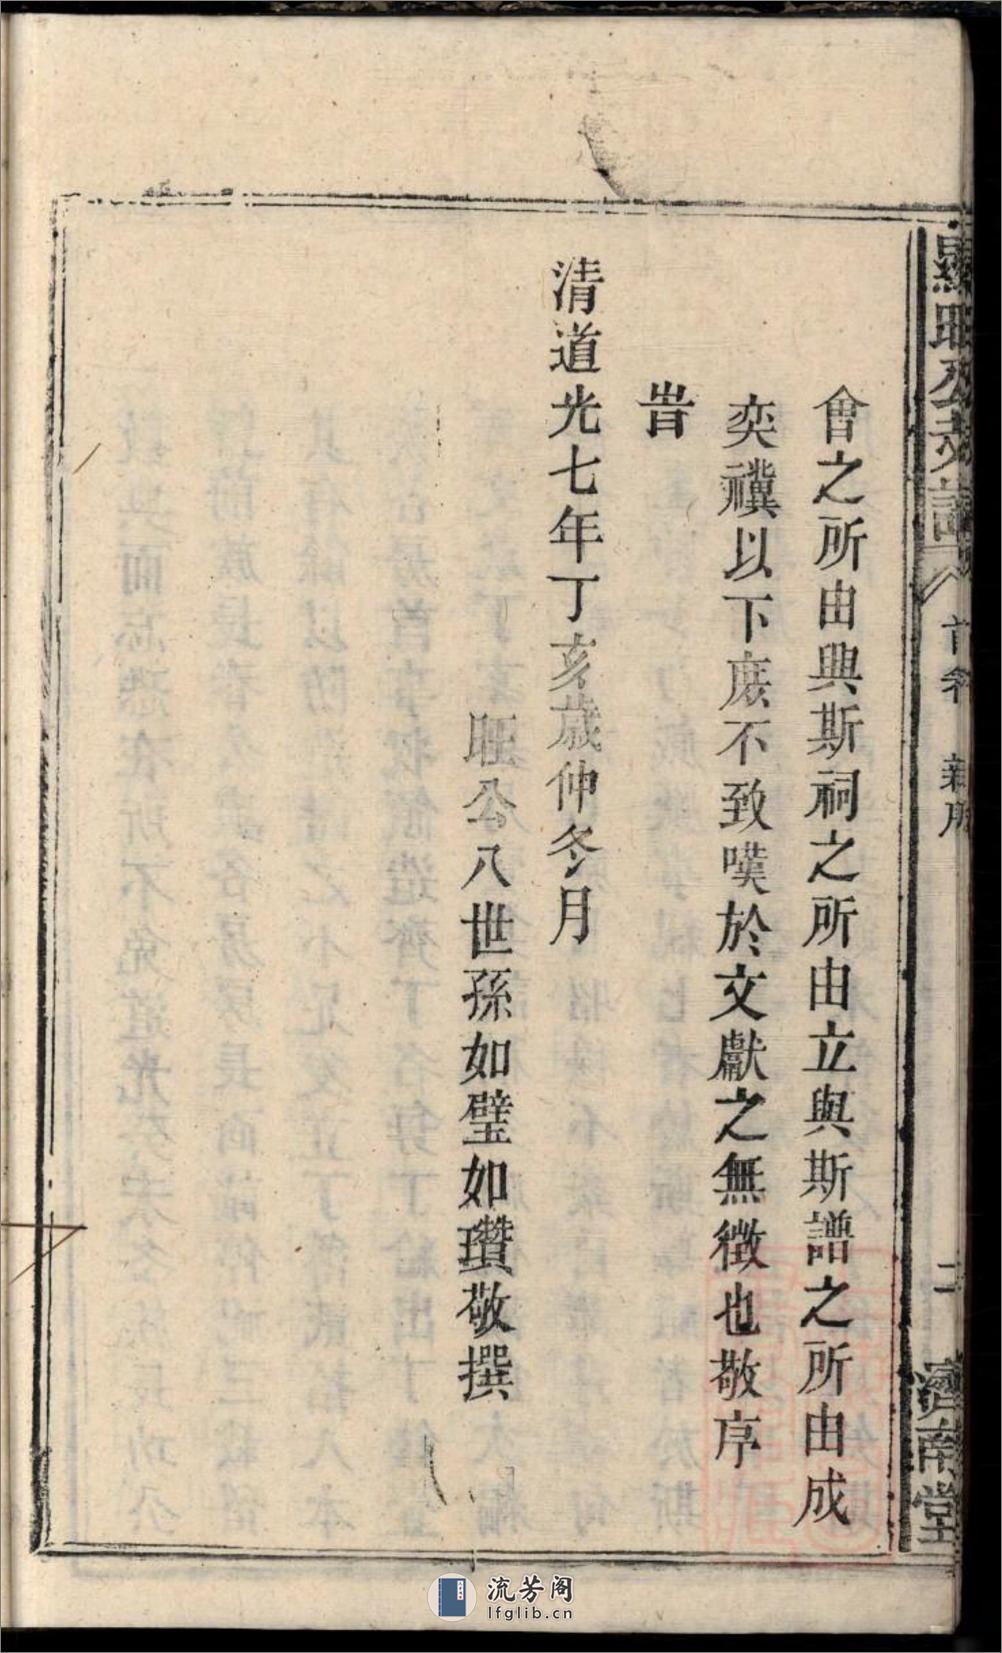 會之所由興斯祠之所由立與斯譜之所由成
奕禩以下庶不致嘆於文獻之無徵也敬序
旹
清道光七年丁亥歲仲冬月
旺公八世孫如璧如瓚敬撰
首卷
二
濟南堂
流芳阁
lfglib.cn